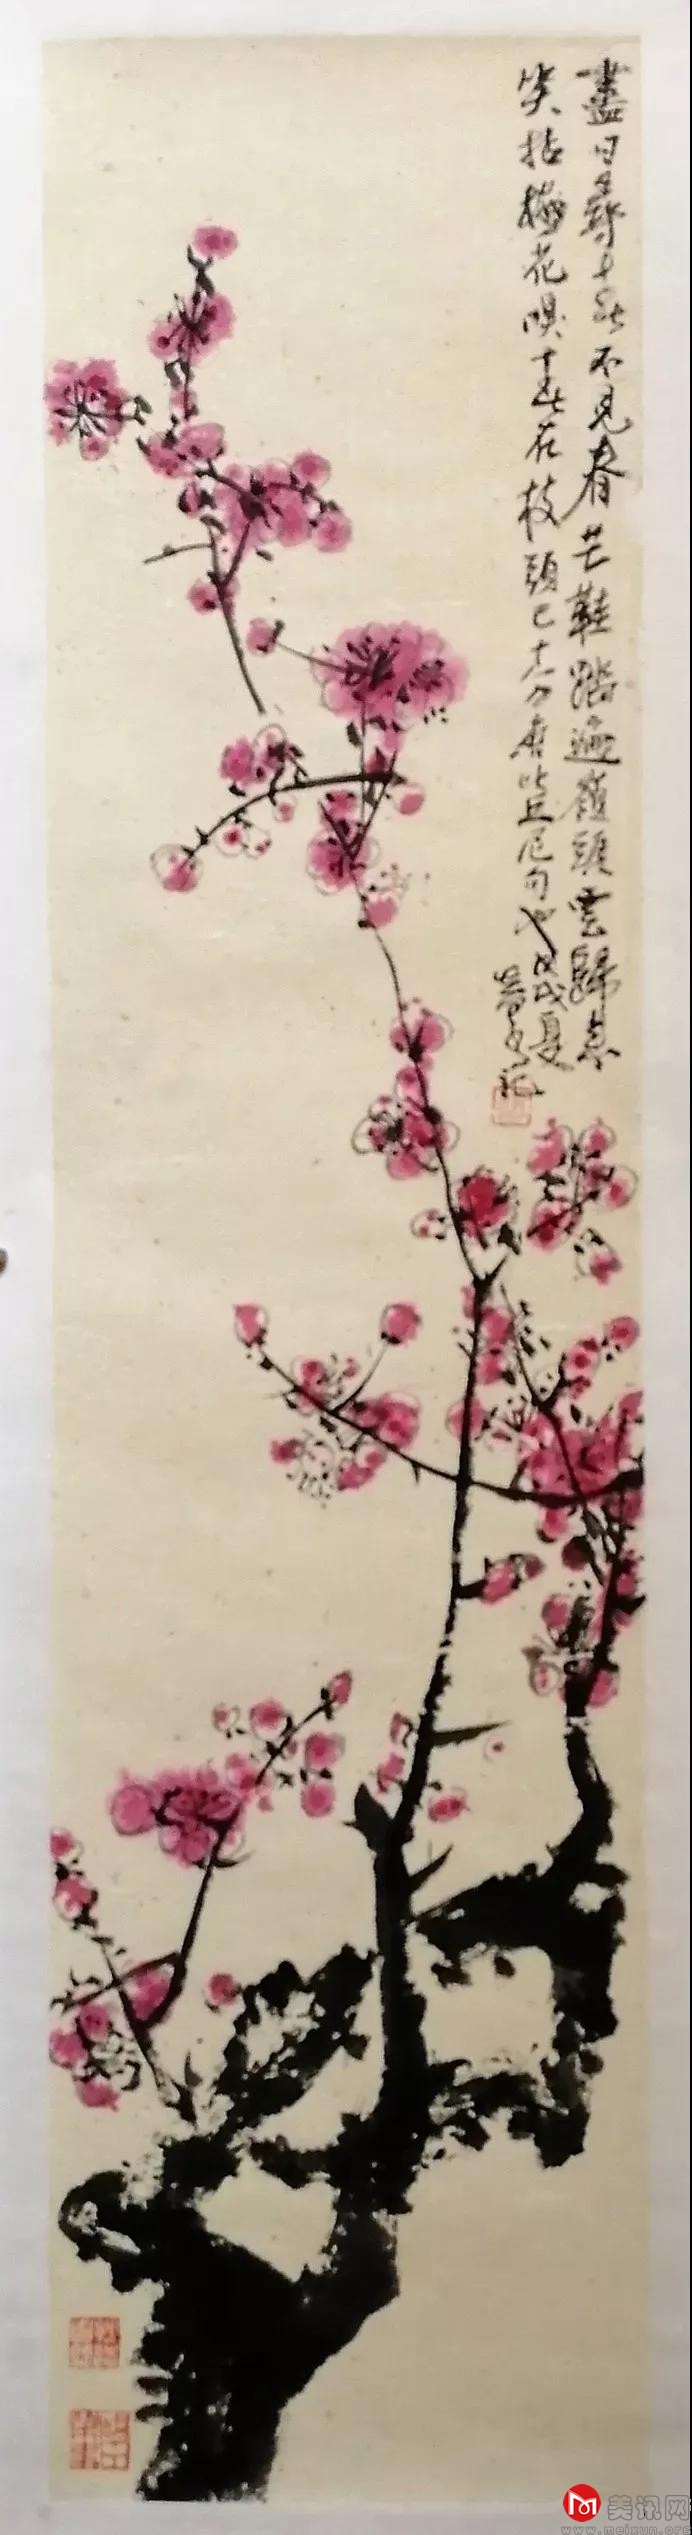 盡日尋春不見春芒鞋踏遍嶺頭雲歸來
笑拈梅花嗅春在枝頭已十分唐比丘尼句也戊戌夏
記
美讯网
www.meixun.org